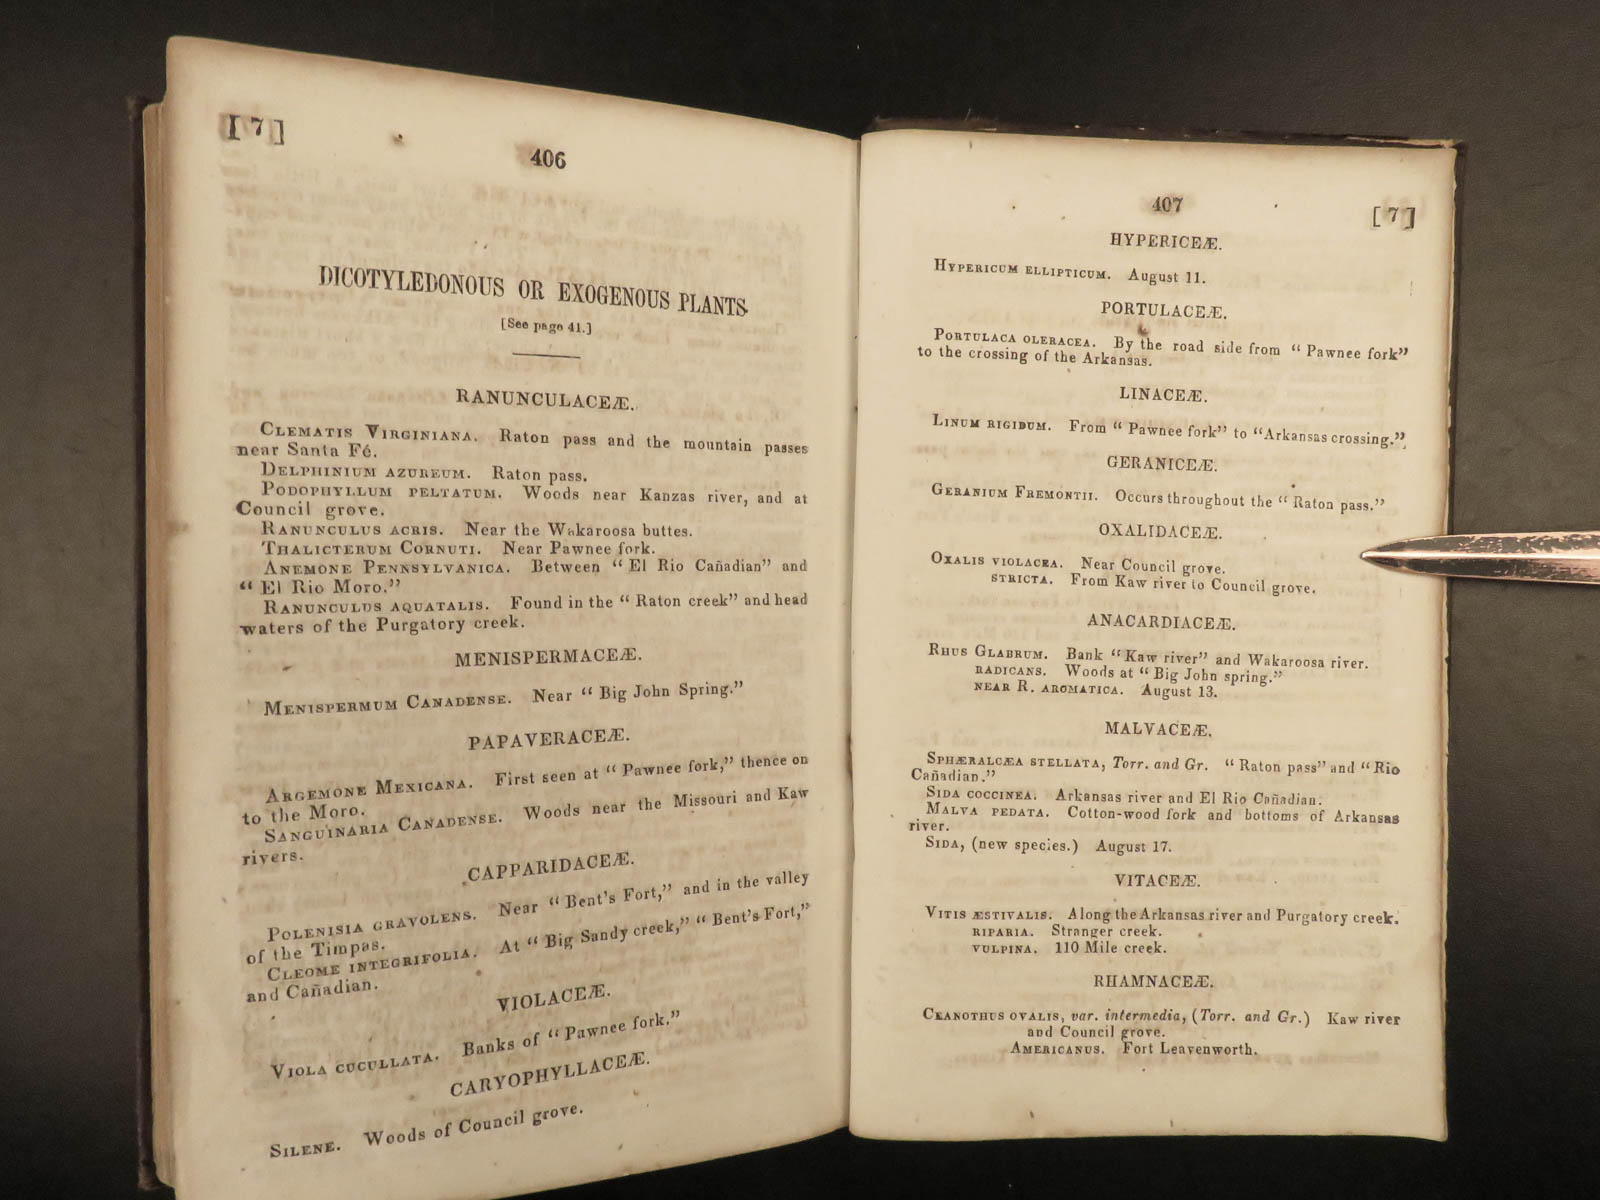 [ 7 ]
406
DICOTYLEDONOUS OR EXOGENOUS PLANTS.
[See page 41.]
RANUNCULACEÆ.
CLEMATIS VIRGINIANA. Raton pass and the mountain passes
near Santa Fé.
DELPHINIUM AZUREUM. Raton pass.
PODOPHYLLUM PELTATUM. Woods near Kanzas river, and at
Council grove.
RANUNCULUS ACRIS. Near the Wakaroosa buttes.
THALICTERUM CORNUTI. Near Pawnee fork.
ANEMONE PENNSYLVANICA. Between “El Rio Cañadian” and
“El Rio Moro.”
RANUNCULUS AQUATALIS. Found in the “Raton creek” and head
waters of the Purgatory creek.
MENISPERMACEÆ.
MENISPERMUM CANADENSE. Near “Big John Spring.”
PAPAVERACEÆ.
ARGEMONE MEXICANA. First seen at “Pawnee fork,” thence on
to the Moro.
SANGUINARIA CANADENSE. Woods near the Missouri and Kaw
rivers.
CAPPARIDACEÆ.
POLENISIA GRAVOLENS. Near “Bent's Fort,” and in the valley
of the Timpas.
CLEOME INTEGRIFOLIA. At “Big Sandy creek,” “Bent's Fort,”
and Cañadian.
VIOLACEÆ.
VIOLA CUCULLATA. Banks of “Pawnee fork.”
CARYOPHYLLACEÆ.
SILENE. Woods of Council grove.
407
[ 7 ]
HYPERICEÆ.
HYPERICUM ELLIPTICUM. August 11.
PORTULACEÆ.
PORTULACA OLERACEA. By the road side from “Pawnee fork”
to the crossing of the Arkansas.
LINACEÆ.
LINUM RIGIDUM. From “Pawnee fork” to “Arkansas crossing.”
GERANICEÆ.
GERANIUM FREMONTII. Occurs throughout the “Raton pass.”
OXALIDACEÆ.
OXALIS VIOLACEA. Near Council grove.
STRICTA. From Kaw river to Council grove.
ANACARDIACEÆ.
RHUS GLABRUM. Bank “Kaw river” and Wakaroosa river.
RADICANS. Woods at “Big John spring.”
NEAR R. AROMATICA. August 13.
MALVACEÆ.
SPHÆRALCÆA STELLATA, Torr. and Gr. “Raton pass” and “Rio
Cañadian.”
SIDA COCCINEA. Arkansas river and El Rio Cañadian.
MALVA PEDATA. Cotton-wood fork and bottoms of Arkansas
river.
SIDA, (new species.) August 17.
VITACEÆ.
VITIS ÆSTIVALIS. Along the Arkansas river and Purgatory creek.
RIPARIA. Stranger creek.
VULPINA. 110 Mile creek.
RHAMNACEÆ.
CEANOTHUS OVALIS, var. intermedia, (Torr. and Gr.) Kaw river
and Council grove.
AMERICANUS. Fort Leavenworth.